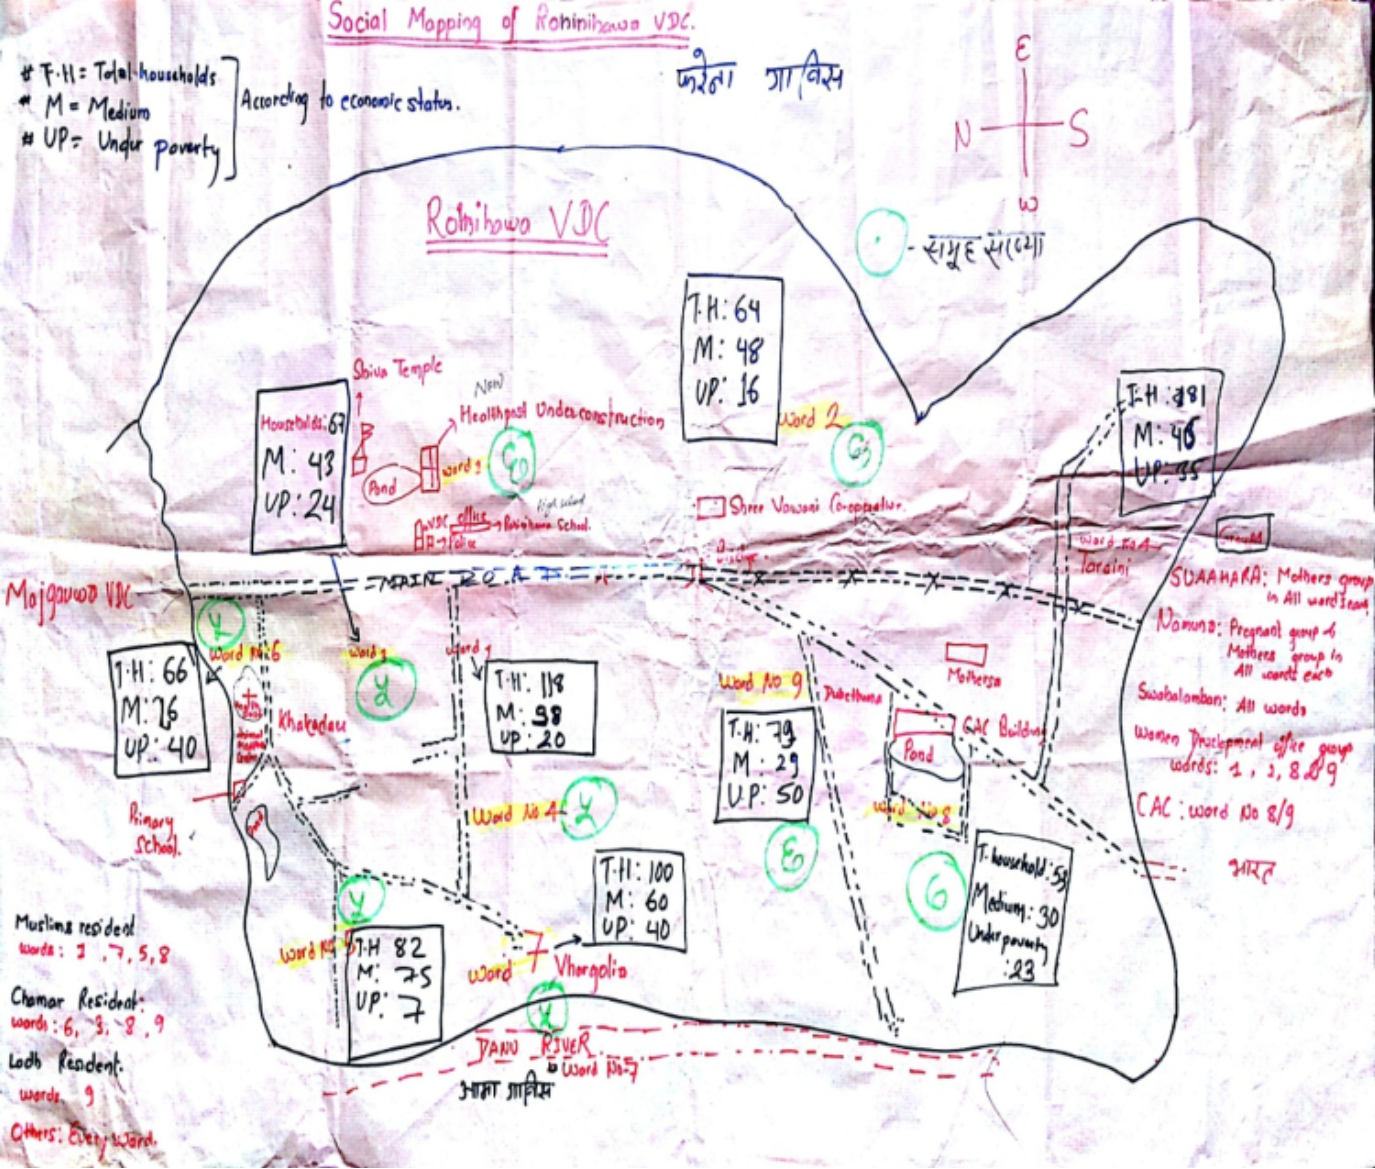 Social Mapping of Rohinihawa VDC.
# T.H = Total households
# M = Medium
# UP = Undur poverty
According to economic status.
फरेना गाविस
E
N
S
W
Rohnihawa VDC
समूह संख्या
T.H: 64
M: 48
UP: 16
Word 2
Shiva Temple
New
Healthpost Underconstruction
Households: 67
M: 43
UP: 24
Pond
word 3
High school
VDC office
School.
Police
Shree Co-operative.
T.H: 181
M: 46
UP: 35
Word No 1
Taraini
MAIN ROAD
Majgauwa VDC
Word No: 6
T.H: 66
M: 26
UP: 40
Khakadau
word 3
word 4
T.H: 118
M: 98
UP: 20
Word No 4
Primary
School.
Pond
Word No 9
T.H: 79
M: 29
UP: 50
Madhersa
CAC Building
Pond
Word No 8
T. household: 53
Medium: 30
Under poverty
: 23
T.H: 100
M: 60
UP: 40
T.H 82
M: 75
UP: 7
Word No 5
Word 7
Vhargolia
DANU RIVER
Word No-7
आमा गाविस
SUAAHARA: Mothers group
in All word
Namuna: Pregnant group &
Mothers group in
All words each
Swabalamban: All words
Women Development office group
words: 1, 2, 8 & 9
CAC: word No 8/9
भारत
Muslims resident
words: 1, 7, 5, 8
Chamar Resident:
words: 6, 3, 8, 9
Lodh Resident.
words. 9
Others: Every word.